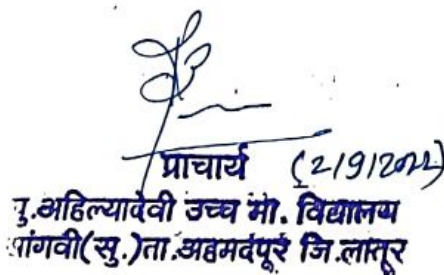 प्राचार्य (2/9/2022)
पु.अहिल्यादेवी उच्च मा. विद्यालय
सांगवी(सु.)ता.अहमदपूर जि.लातूर